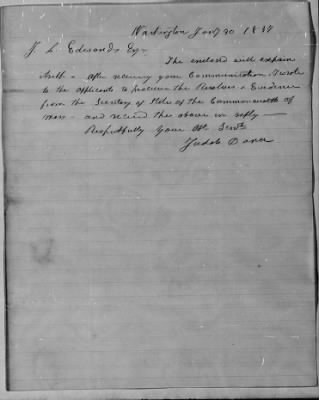 Washington Jany 30 1837
J L Edwards Esqr
The enclosed will explain
itself - after receiving your Communication I wrote
to the applicants to procure the Resolves & Evidence
from the Secretary of State of the Commonwealth of
Mass - and received the above in reply -
Respectfully Your Obt Servt
Judah Dana